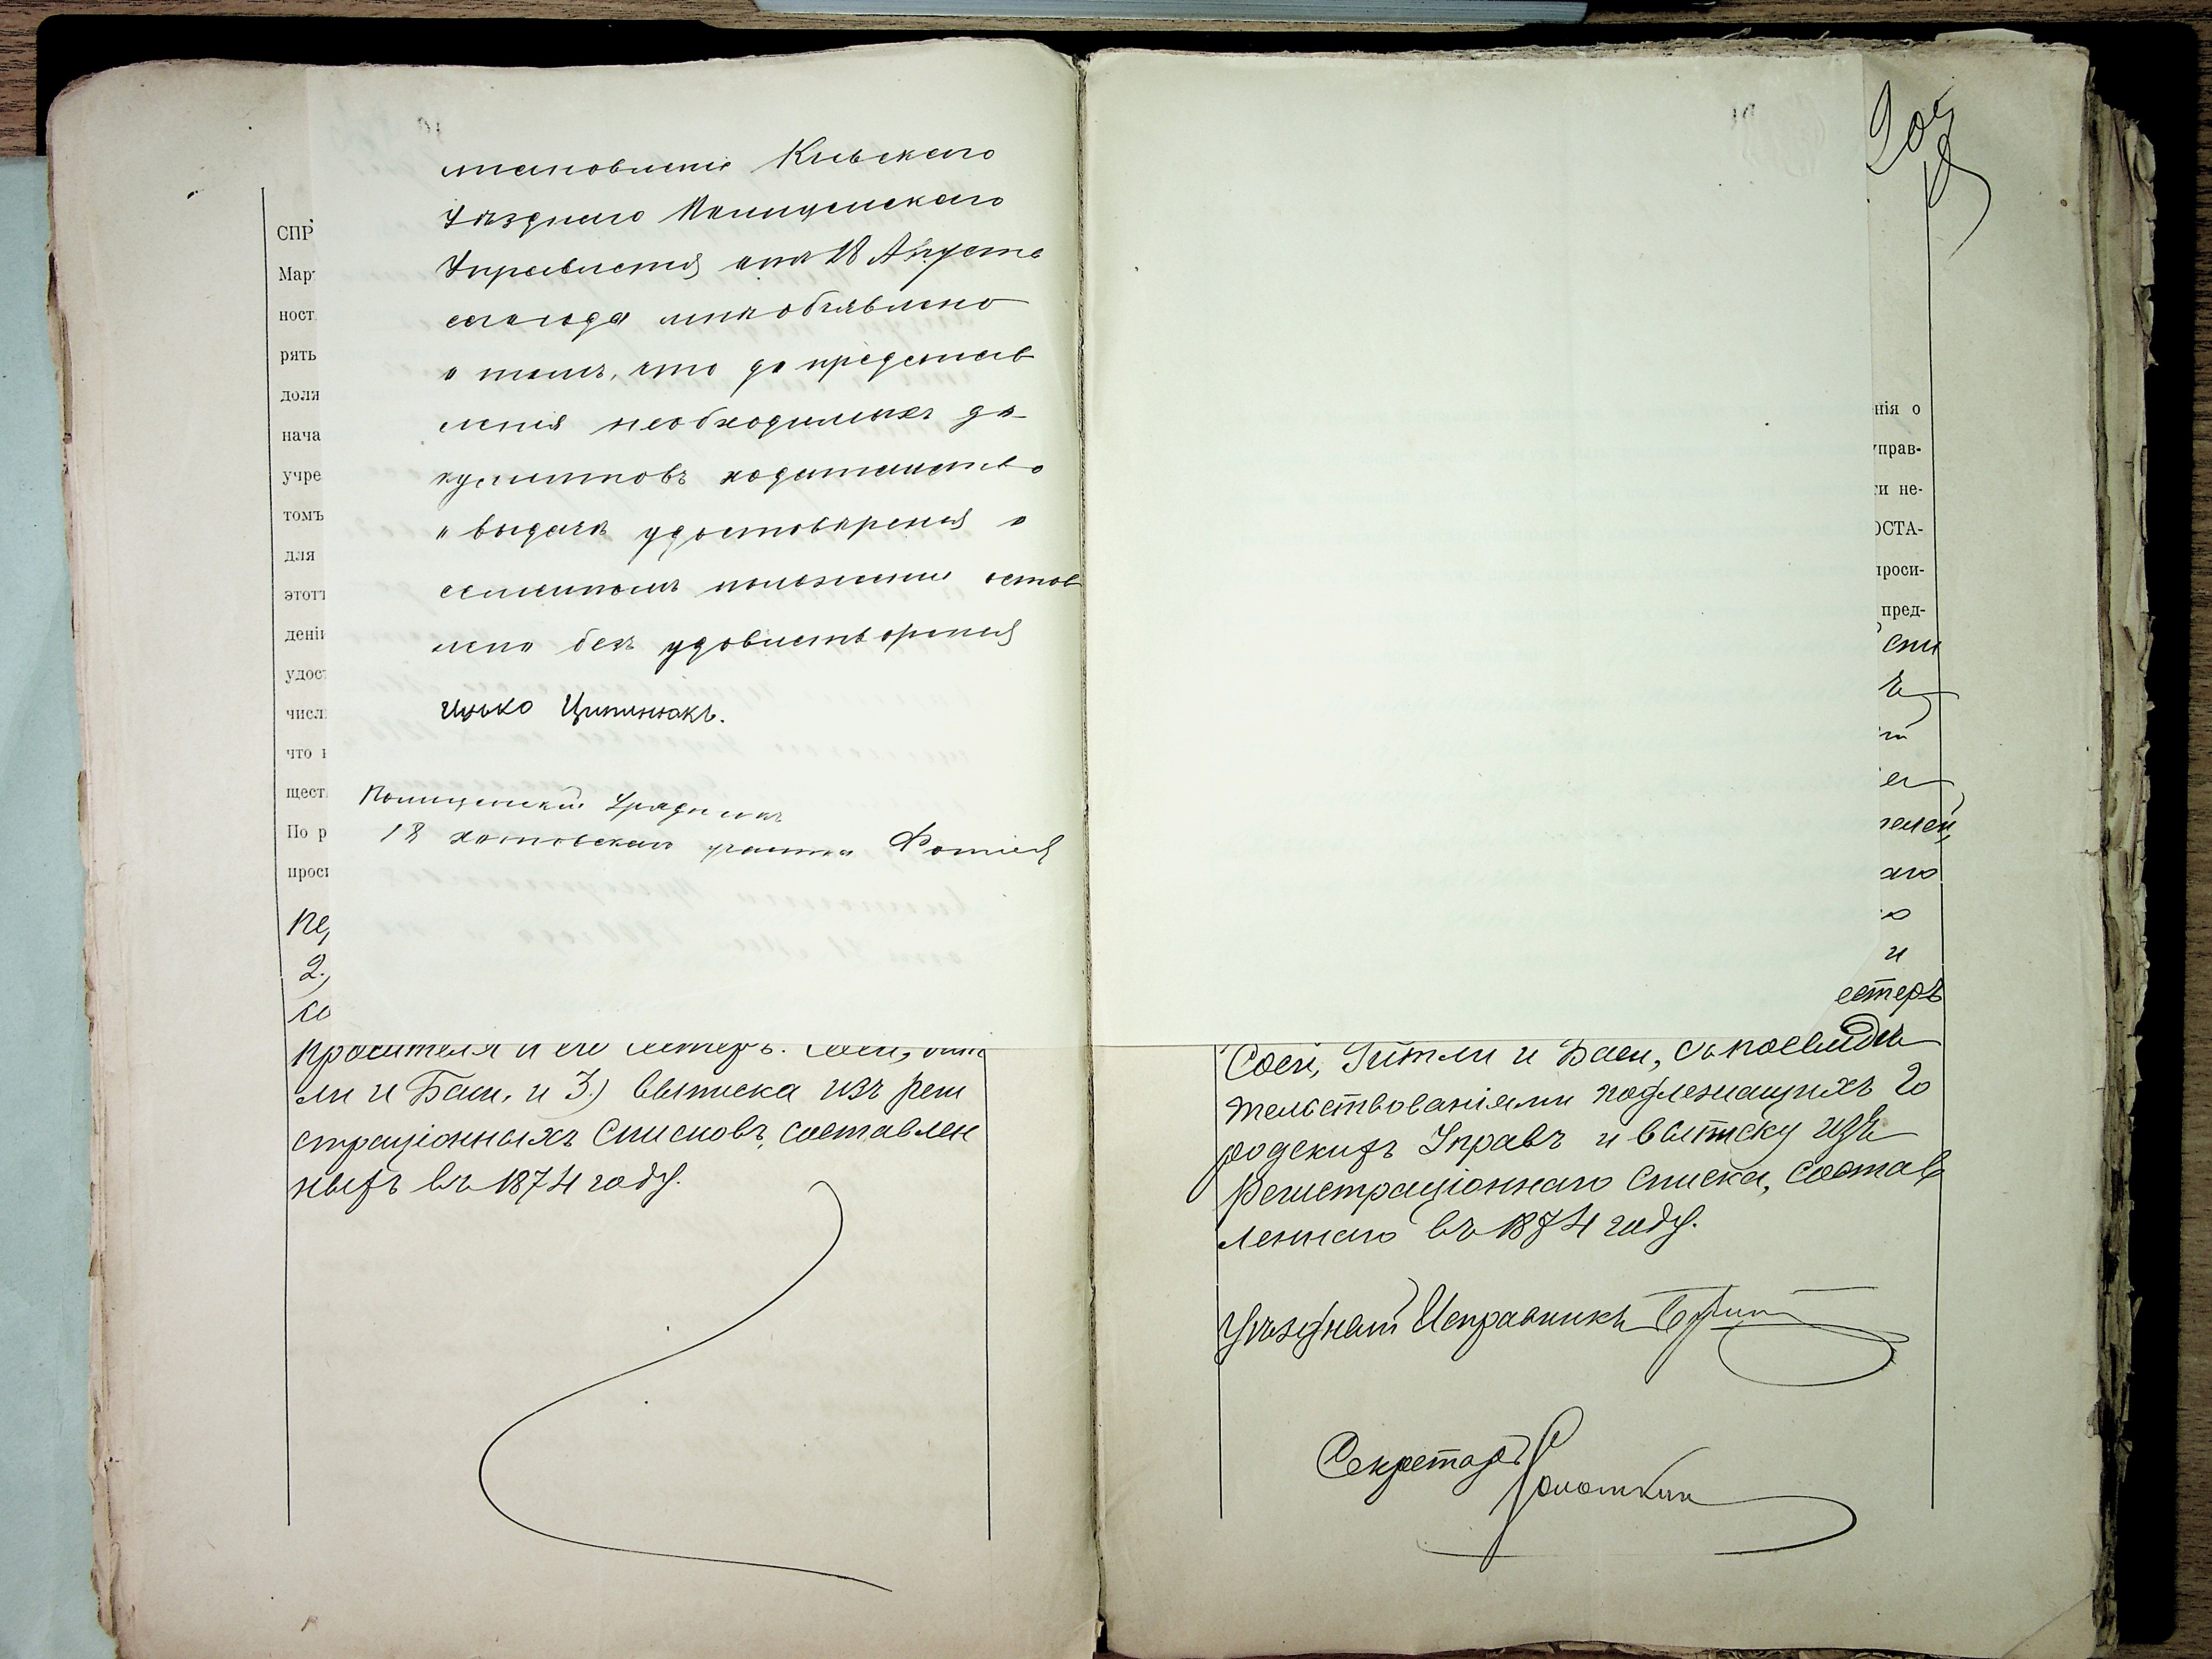 становленіе Кіевскаго
Уѣзднаго Полицейскаго
Управленія отъ 18 Августа
сего года мнѣ объявлено
о томъ, что до представ
ленія необходимыхъ до-
кументовъ ходатайство
о выдачѣ удостовѣренія о
семейномъ положеніи остав
лено безъ удовлетворенія
Ицько Ципинюкъ.
Полицейскій Урядникъ
18 хотовскаго участка
СПР
Мар
ност
рять
доля
нача
учре
томъ
для
этот
дені
удос
числ
что
щест
По р
прос
2.)
просителя и его сестеръ: Соси, Гит
ли и Баси, и 3.) выписка изъ реги
страціонныхъ списковъ, составлен
ныхъ въ 1874 году.
нія о
управ-
ти не-
ОСТА-
проси-
пред-
и
естеръ
Соси, Гитли и Баси, съ посвидѣ
тельствованіями подлежащихъ Го
родскихъ Управъ и выписку изъ
Регистраціоннаго списка, состав
леннаго въ 1874 году.
Уѣздный Исправникъ
Секретарь